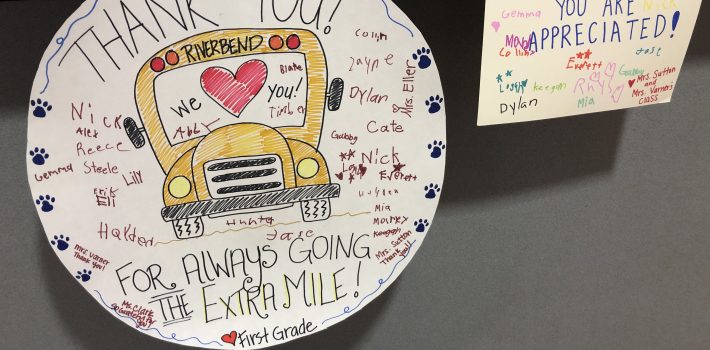 THANK YOU!
RIVERBEND
we ♥ you!
Blake
Timber
Abby
Nick
Alex
Reece
Gemma
Steele
Lily
Erik
Eli
Halden
Mrs. Varner
Thank You!
Hunter
Jase
Collin
Jayne
Dylan
Mrs. Eller
Cate
Gabby
Nick
Everett
Mia
Keegan
Mrs. Sutton
Thank You!!
FOR ALWAYS GOING
THE EXTRA MILE!
Ms. Clark
♥First Grade
YOU ARE
APPRECIATED!
Gemma
Nick
Collin
Jase
Everett
Gabby
Keegan
Rhys
Mrs. Sutton
and
Mrs. Varners
class
Dylan
Mia